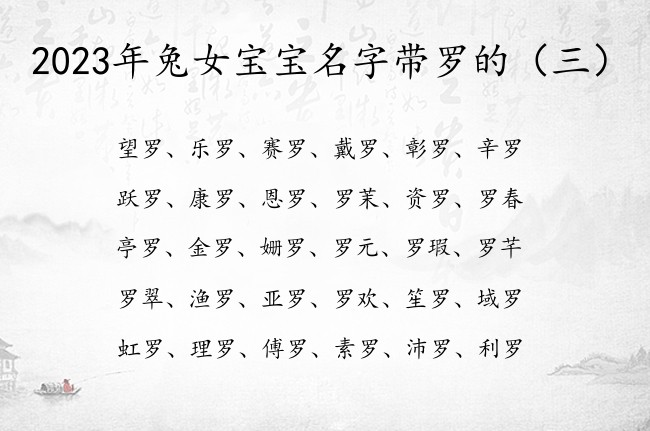 2023年兔女宝宝名字带罗的（三）
望罗、乐罗、赛罗、戴罗、彰罗、辛罗
跃罗、康罗、恩罗、罗茉、资罗、罗春
亭罗、金罗、姗罗、罗元、罗瑕、罗芊
罗翠、渔罗、亚罗、罗欢、笙罗、域罗
虹罗、理罗、傅罗、素罗、沛罗、利罗